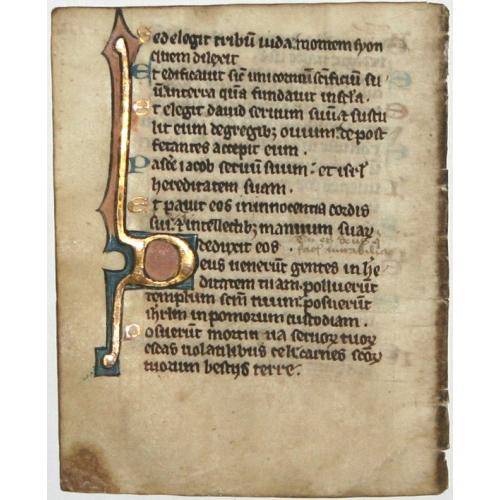 Sed elegit tribũ iuda: montem syon
quem dilexit
Et edificauit sic̃ unicornuũ sc̃ificiũ su
ũ in terra quã fundauit in sc̃la.
Et elegit dauid seruum suũ & sustu
lit eum de gregibꝫ ouium: de post
fetantes accepit eum.
Pasce iacob seruũ suum: et isrl̃
hereditatem suam.
Et pauit eos in innocentia cordis
sui: & in intellectibꝫ manuum suaꝝ
deduxit eos.
Tu es deus q̃
facis mirabilia
Deus uenerũt gentes in he
ditatem tuam: polluerũt
templum sc̃m tuum: posuerũt
ihrl̃m in pomorum custodiam.
Posuerũt morticina seruoꝝ tuoꝝ
escas uolatilibus celi: carnes sc̃oꝝ
tuorum bestijs terre.